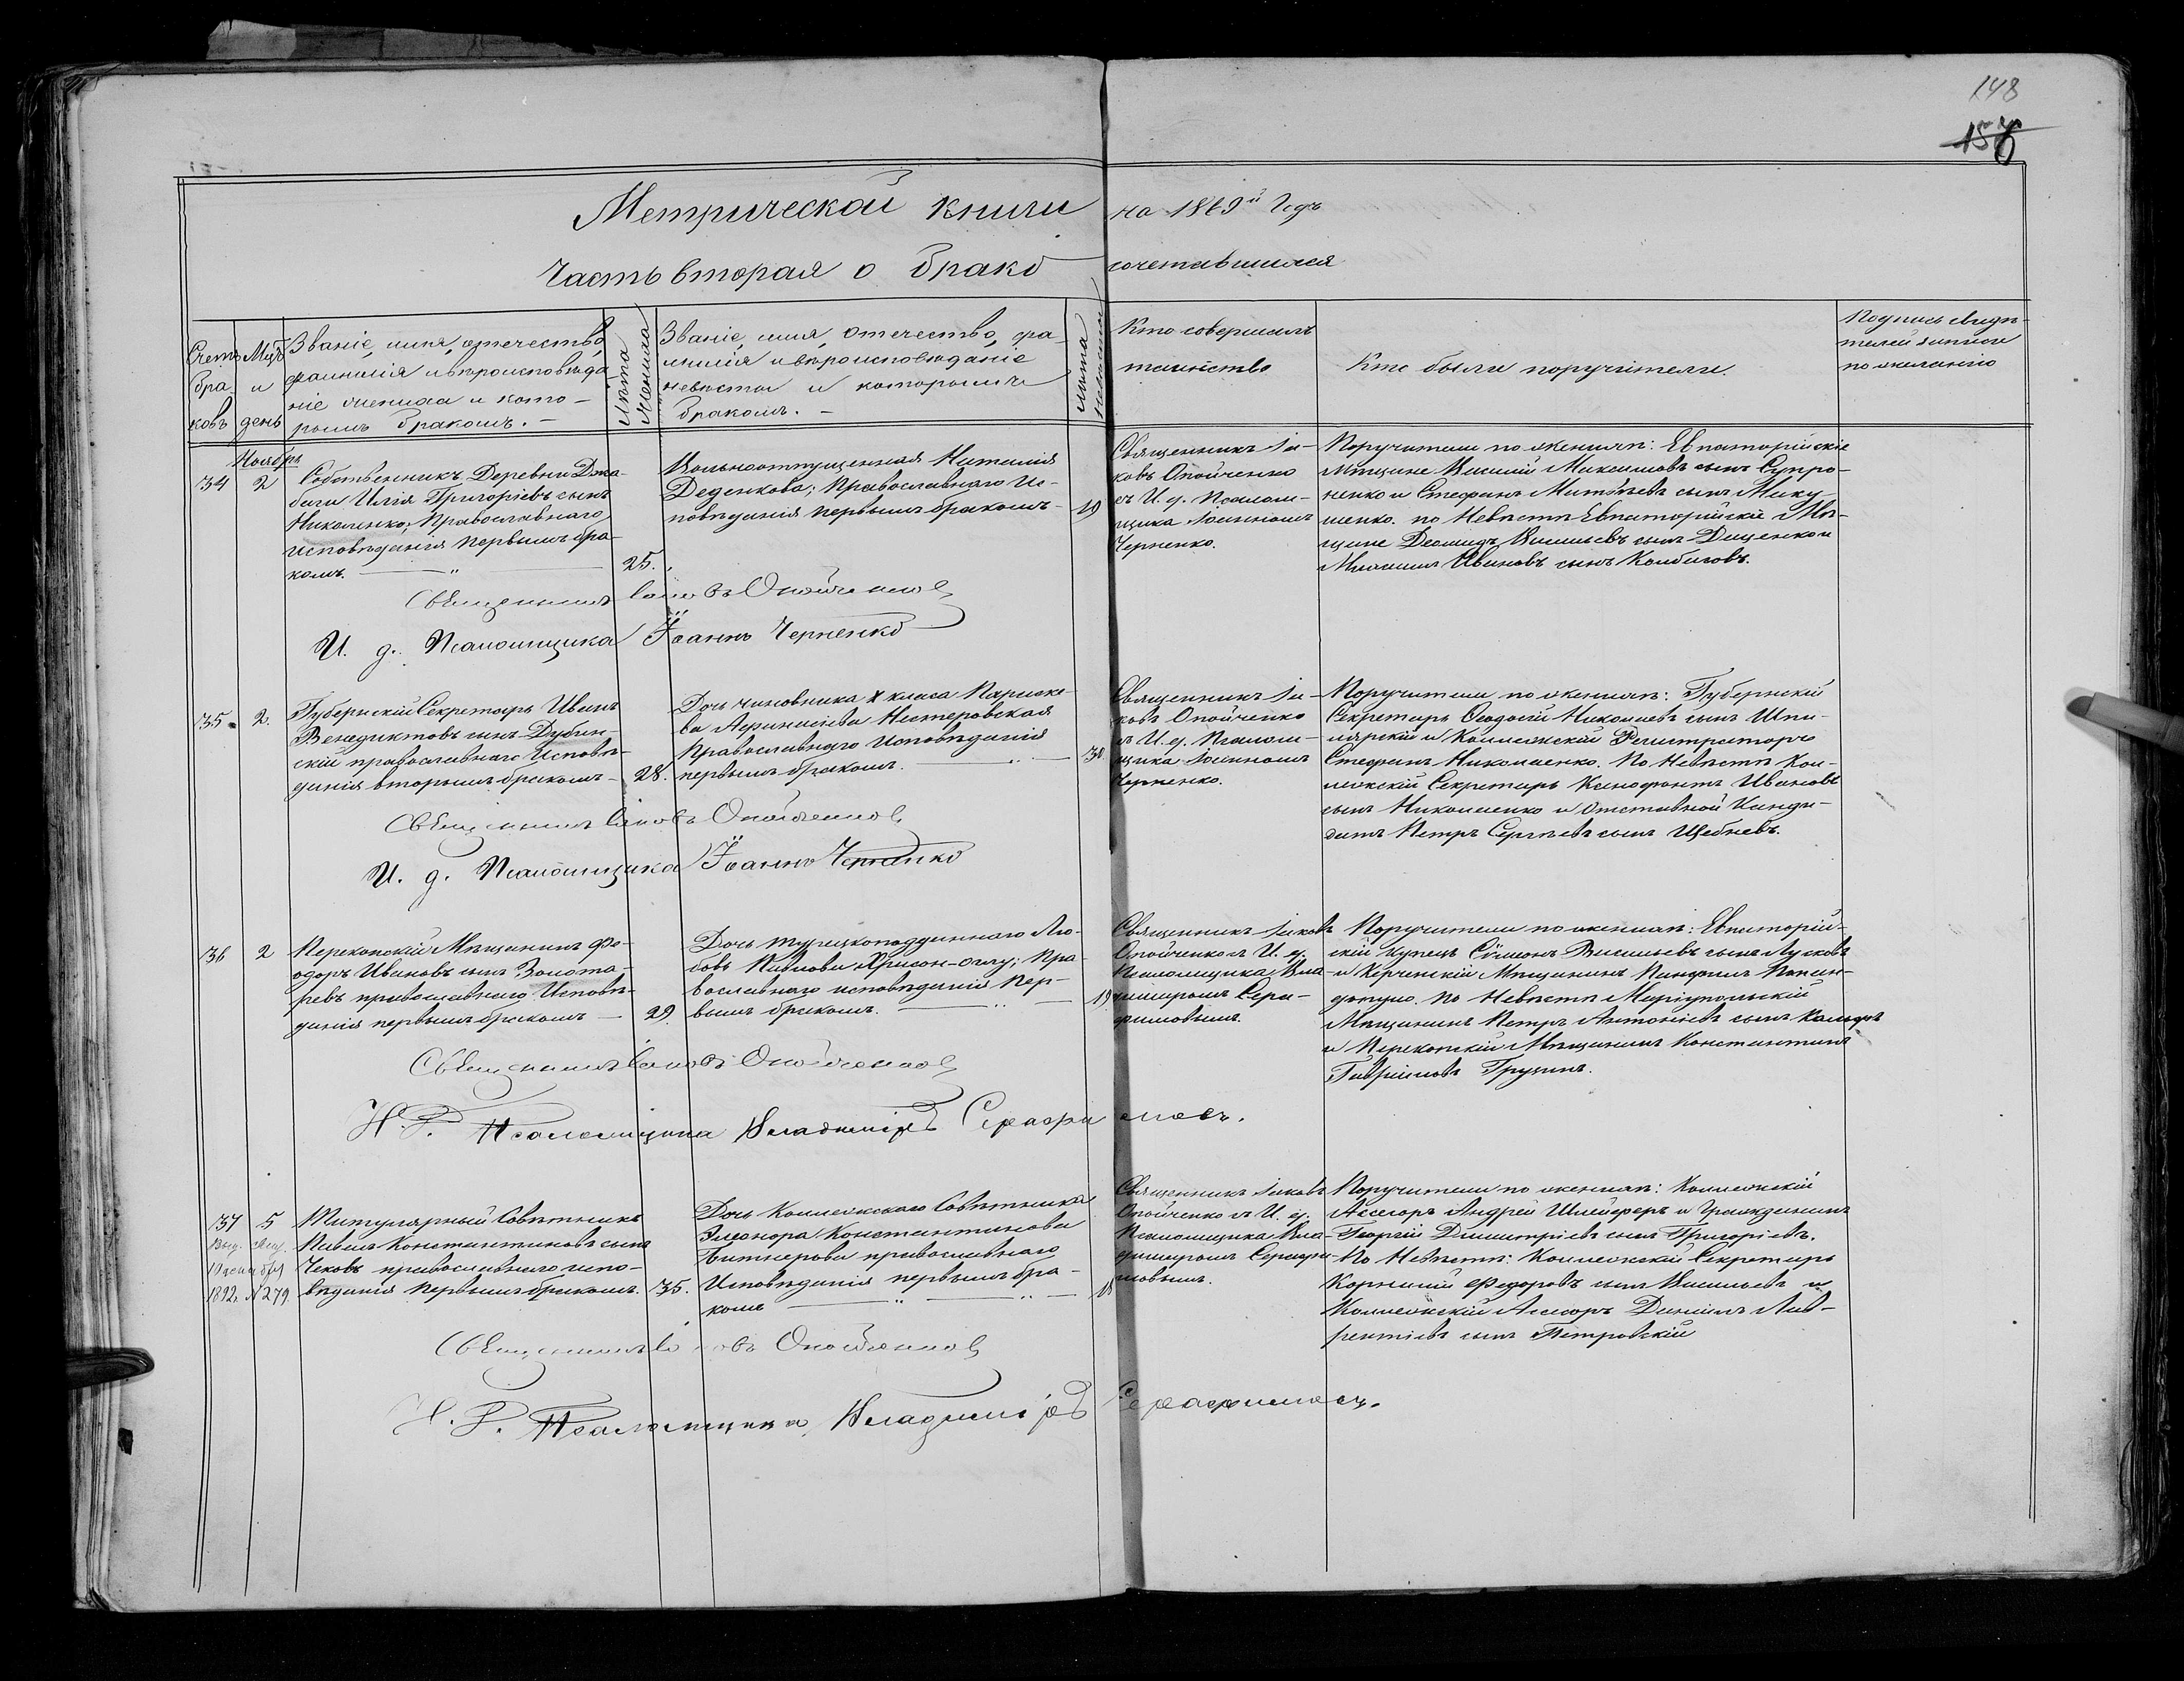 148
156
Метрической книги на 1869й Годъ
Часть вторая о бракосочетавшихся
Счетъ браковъ
Мцъ и день
Званіе, имя, отечество,
фамилія и вѣроисповѣда
ніе жениха и кото-
рымъ бракомъ. -
Лѣта жениха
Званіе, имя, отечество, фа-
милія и вѣроисповѣданіе
невѣсты и которымъ
бракомъ. -
Лѣта невѣсты
Кто совершалъ
таинство
Кто были поручители.
Подпись свидѣ-
телей записи
по желанію
Ноябрь
34
2
Собственникъ Деревни Джа-
бачи Илія Григорьевъ сынъ
Николенко, Православнаго
исповѣданія первымъ бра-
комъ. — " —
25.
Вольноотпущенная Наталія
Деденкова; Православнаго Ис-
повѣданія первымъ бракомъ -
19
Священникъ Іа-
ковъ Опойченко
съ И. д. Псалом-
щика Іоанномъ
Черненко.
Поручители по женихѣ: Евпаторійскіе
Мѣщане Василій Максимовъ сынъ Супро-
ненко и Стефанъ Матвѣевъ сынъ Мику-
шенко. по Невѣстѣ Евпаторійскіе Мѣ-
щане Деомидъ Васильевъ сынъ Дищенко и
Михаилъ Ивановъ сынъ Комбиговъ.
Священникъ Іаковъ Опойченко
И. д. Псаломщика Іоаннъ Черненко
35.
2.
Губернскій Секретарь Иванъ
Венедиктовъ сынъ Дубин-
скій православнаго Исповѣ-
данія вторымъ бракомъ -
28.
Дочь чиновника X класа Параске-
ва Афанасіева Нестеровская
Православнаго Исповѣданія
первымъ бракомъ. — " —
30
Священникъ Іа-
ковъ Опойченко
съ И. д. Псалом-
щика Іоанномъ
Черненко.
Поручители по женихѣ: Губернскій
Секретарь Ѳеодосій Николаевъ сынъ Шпи-
лярскій и Коллежскій Регистраторъ
Стефанъ Николаенко. По Невѣстѣ Кол-
лежскій Секретарь Ксенофонтъ Ивановъ
сынъ Николаенко и Отставной Канди-
датъ Петръ Сергѣевъ сынъ Щебневъ.
Священникъ Іаковъ Опойченко
И. д. Псаломщика Іоаннъ Черненко
36
2
Перекопскій Мѣщанинъ Фе-
одоръ Ивановъ сынъ Золота-
ревъ православнаго Исповѣ-
данія первымъ бракомъ —
29.
Дочь турецкоподданнаго Лю-
бовь Павлова Хрисон-оглу; Пра-
вославнаго исповѣданія пер-
вымъ бракомъ. — " —
19
Священникъ Іаковъ
Опойченко съ И. д.
Псаломщика Вла-
димиромъ Сера-
фимовымъ.
Поручители по женихѣ: Евпаторій-
скій купецъ Сѵмеонъ Васильевъ сынъ Лусковъ
и Керченскій Мѣщанинъ Панфилъ
По Невѣстѣ Маріупольскій
Мѣщанинъ Петръ Антоніевъ сынъ
и Перекопскій Мѣщанинъ Константинъ
Гавріиловъ Грузинъ.
Священникъ Іаковъ Опойченко
И. Д. Псаломщика Владиміръ Серафимовъ.
37
5
Выд. Свид.
10 декабря
1892. №279
Титулярный Совѣтникъ
Павелъ Константиновъ сынъ
Чеховъ православнаго испо-
вѣданія первымъ бракомъ.
35.
Дочь Коллежскаго Совѣтника
Элеонора Константинова
Битнерова православнаго
Исповѣданія первымъ бра-
комъ — " —
18
Священникъ Іаковъ
Опойченко съ И. д.
Псаломщика Вла-
димиромъ Серафи-
мовымъ.
Поручители по женихѣ: Коллежскій
Асесоръ Андрей Шлейферъ и Гражданинъ
Георгій Дмитріевъ сынъ Григорьевъ.
По Невѣстѣ: Коллежскій Секретарь
Корнилій Федоровъ сынъ Васильевъ и
Коллежскій Асесоръ Даніилъ Лав-
рентіевъ сынъ Петровскій
Священникъ Іаковъ Опойченко
И. Д. Псаломщика Владиміръ Серафимовъ.